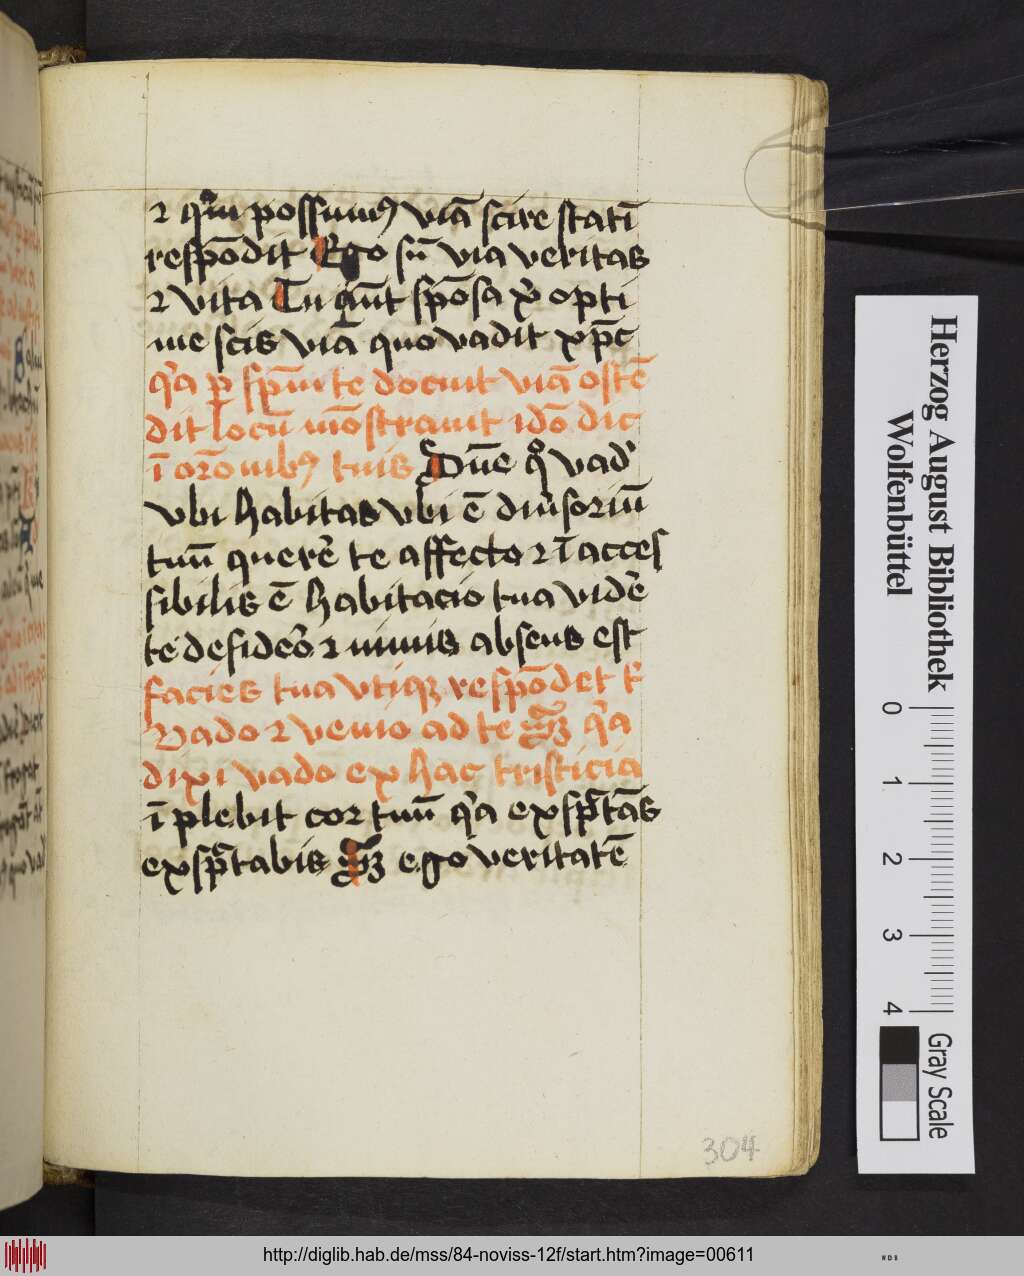 ⁊ qm̄ possumꝰ viā scire statī
respōdit Ego sū via veritas
⁊ vita Tu aūt spōsa xp̄i opti
me scis viā quo vadit xp̄c
qͥa ꝑ spm̄ te docuit viā ostē
dit locū mōstrauit idō dic
ī orōnibꝰ tuis Dn̄e qͦ vadͥ
vbi habitas vbi ē diuͥsoriū
tuū querē te affecto ⁊ ī acces
sibilis ē habitacio tua vidē
te desideͦ ⁊ nimis absens est
facies tua vtiqꝫ respōdet tͥ
Vado ⁊ venio ad te Sꝫ qͥa
dixi vado ex hac tristicia
īplebit cor tuū qͥa exspͨtās
exspͨtabis Sꝫ ego veritatē
304
Herzog August Bibliothek
Wolfenbüttel
0 1 2 3 4
Gray Scale
http://diglib.hab.de/mss/84-noviss-12f/start.htm?image=00611